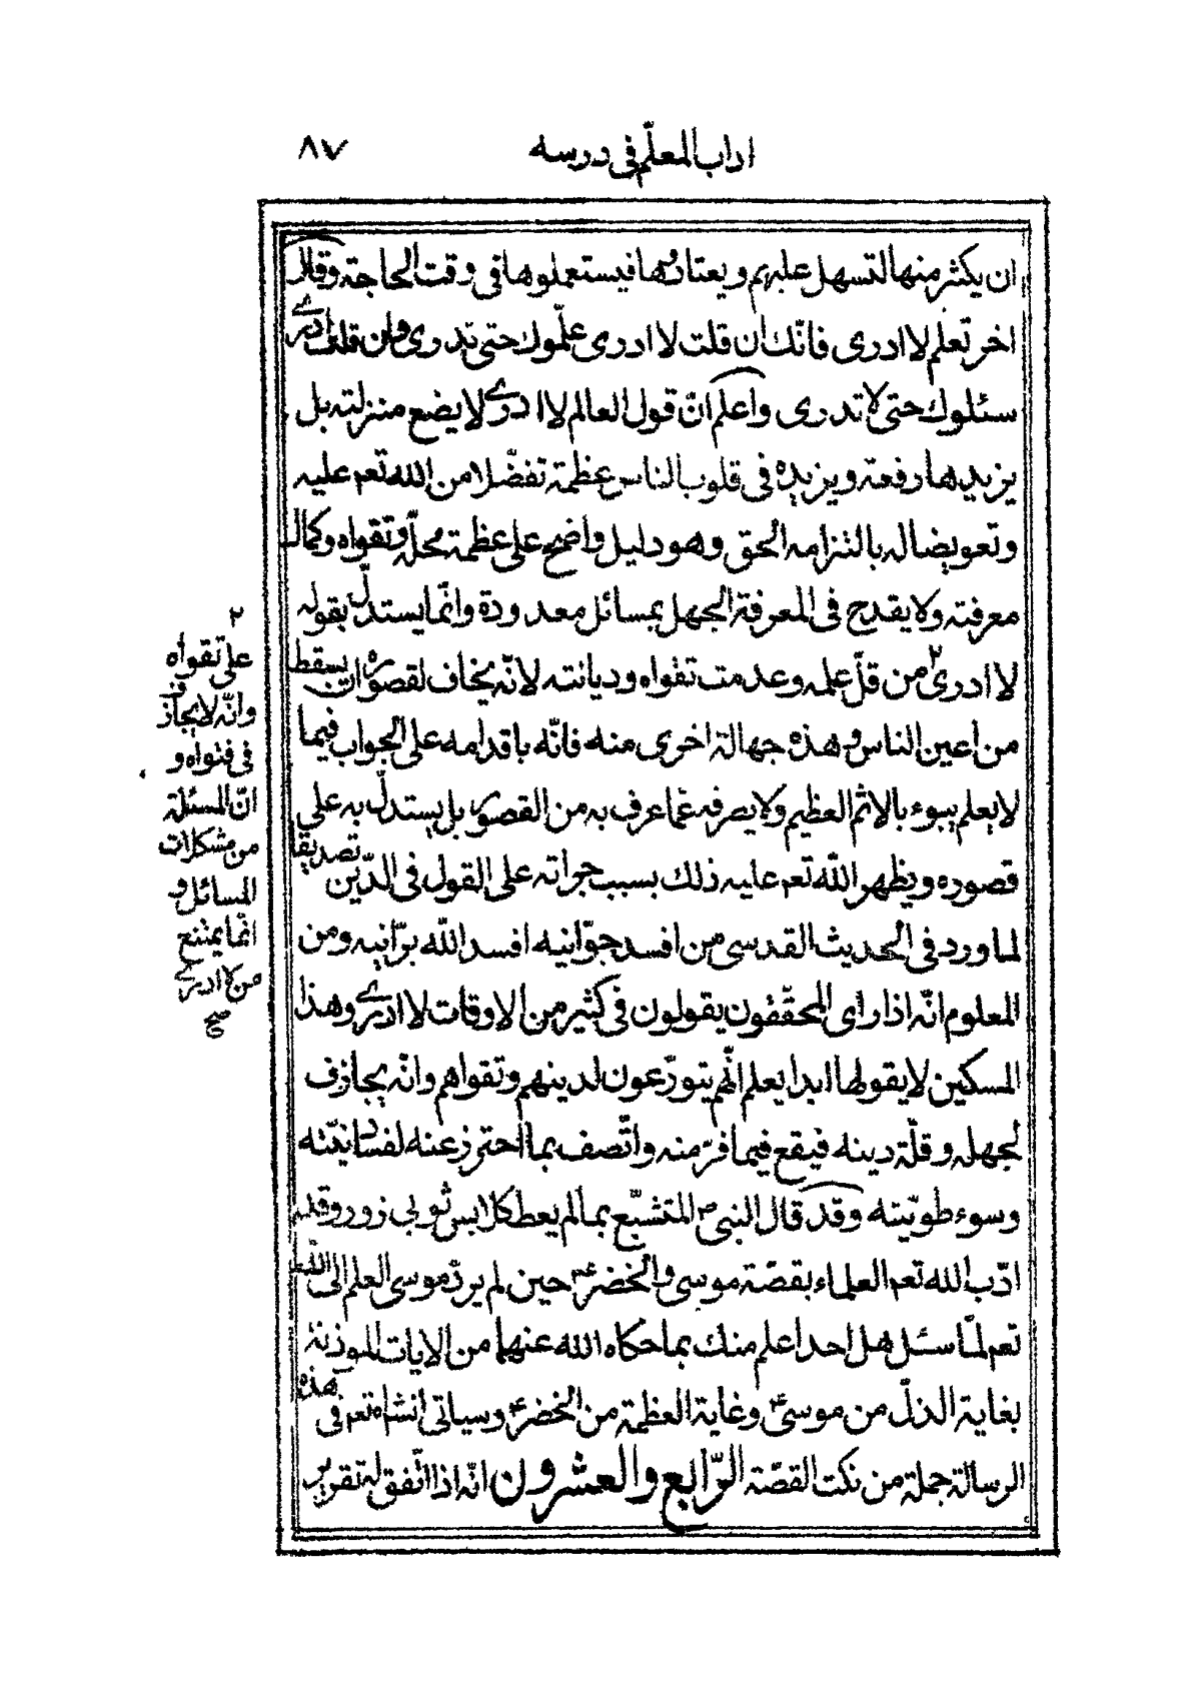 اداب المعلّم فى درسه ٨٧
ان يكثر منها لتسهل عليهم ويعتادوها فيستعملوها فى وقت الحاجة وقال
اخر تعلم لا ادرى فانّك ان قلت لا ادرى علّموك حتى تدرى وان قلت ادرى
سئلوك حتى لا تدرى واعلم انّ قول العالم لا ادرى لا يضع منزلته بل
يزيدها رفعة ويزيده فى قلوب الناس عظمة تفضّلا من الله تعم عليه
وتعويضا له بالتزامه الحق وهو دليل واضح على عظمة محلّه وتقواه وكمال
معرفته ولا يقدح فى المعرفة الجهل بمسائل معدودة وانّما يستدلّ بقوله
لا ادرى ٢ من قلّ علمه وعدمت تقواه وديانته لانّه يخاف لقصوره ان يسقط
من اعين الناس وهذه جهالة اخرى منه فانّه باقدامه على الجواب فيما
لا يعلم يبوء بالاثم العظيم ولا يصرفه عما عرف به من القصور بل يستدلّ به على
قصوره ويظهر الله تعم عليه ذلك بسبب جراته على القول فى الدّين تصديقا
لما ورد فى الحديث القدسى من افسد جوّانيه افسد الله برّانيه ومن
المعلوم انّه اذا راى المحقّقون يقولون فى كثير من الاوقات لا ادرى وهذا
المسكين لا يقولها ابدا يعلم انّهم يتورّعون لدينهم وتقواهم وانّه يجازف
لجهله وقلّة دينه فيقع فيما فرّ منه واتّصف بما احترز عنه لفساد نيّته
وسوء طويّته وقد قال النبى ص المتشبّع بما لم يعط كلابس ثوبى زور وقد
ادّب الله تعم العلماء بقصّة موسى والخضر ع حين لم يردّ موسى العلم الى الله
تعم لمّا سئل هل احد اعلم منك بما حكاه الله عنهما من الايات الموذنة
بغاية الذلّ من موسى ع وغاية العظمة من الخضر ع وسياتى انشاه تعم فى هذه
الرسالة جملة من نكت القصّة الرّابع والعشرون انّه اذا اتّفق له تقرير
٢
على تقواه
وانّه لا يجازف
فى فتواه و
انّ المسئلة
من مشكلات
المسائل و
انّما يمتنع
من لا ادرى
صح